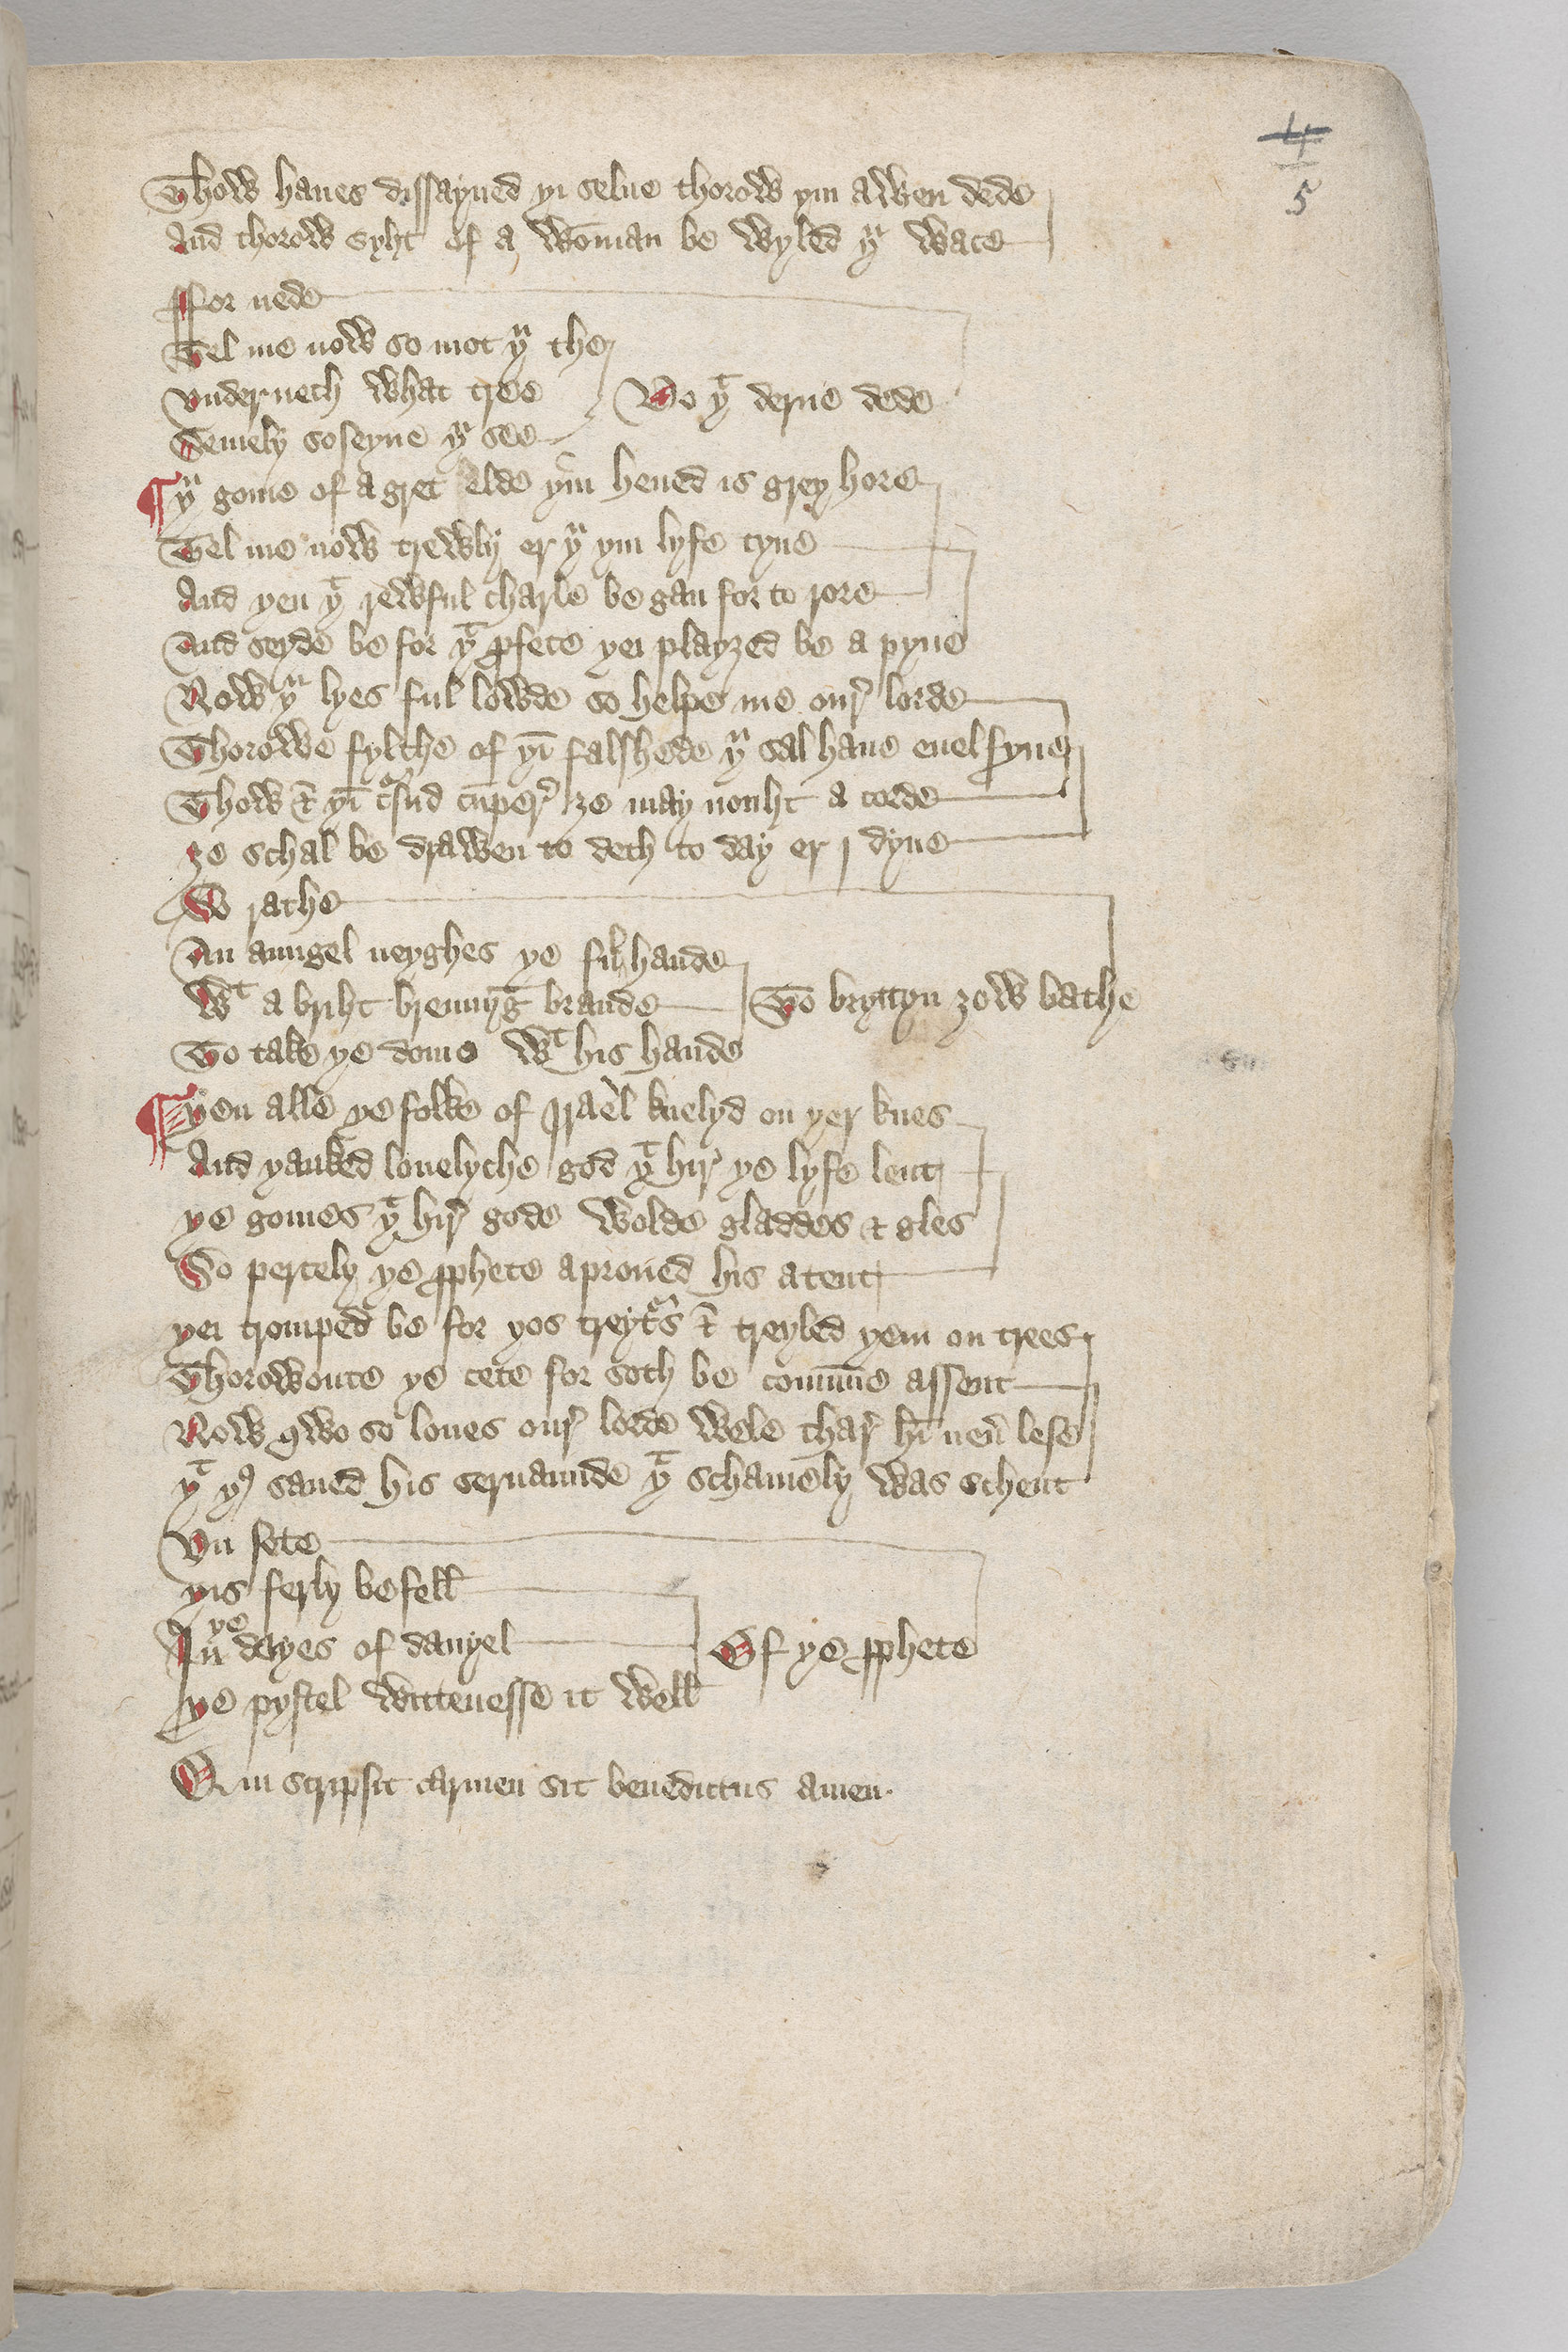 4
5
Thow haues dissayued yi selue thorow yin awen dede
And thorow syht of a woman be wyled yᵘ wate
ffor nede
Tel me now so mot yᵘ the
vnderneth what tree
Do yᵗ derne dede
Semely soseyne yᵘ see
yᵘ gome of a gret elde yin heued is grey hore
Tel me now trewly er yᵘ yin lyfe tyne
And yen yᵗ rewful charle be gan for to rore
And seyde be for yᵗ ꝓfete yei playȝed be a pyne
Now yᵘ lyes ful lowde so helpe me ourͬ lorde
Thorowe fylthe of yī falshede yᵘ sal haue euel fyne
Thow & yī ȝe may nouht a corde
ȝe schal be drawen to deth to day er I dyne
W rathe
An aungel neyghes ye ful hande
Wᵗ a briht brennyḡ brande
To bryttyn ȝow bathe
To take ye dome Wᵗ his hande
yen alle ye folke of Israel knelyd on yer knes
And yanked louelyche god yᵗ hir ye lyfe lent
ye gomes yᵗ hir gode wolde gladdes & gles
So pertely ye ꝓphete aproued his atent
yei tromped be for yos treytᵒʳs & treyled yem on trees
Thorowoute ye cete for soth be commne assent
Now qwo so loues our lorde wele thar hī neu̾ lese
yᵗ yꝰ saued his seruaunde yᵗ schamely was schent
Vn sete
yis ferly befell
In ye dayes of danyel
Of ye ꝓphete
ye pystel wittenesse it well
Qui scripsit carmen sit benedictus amen.